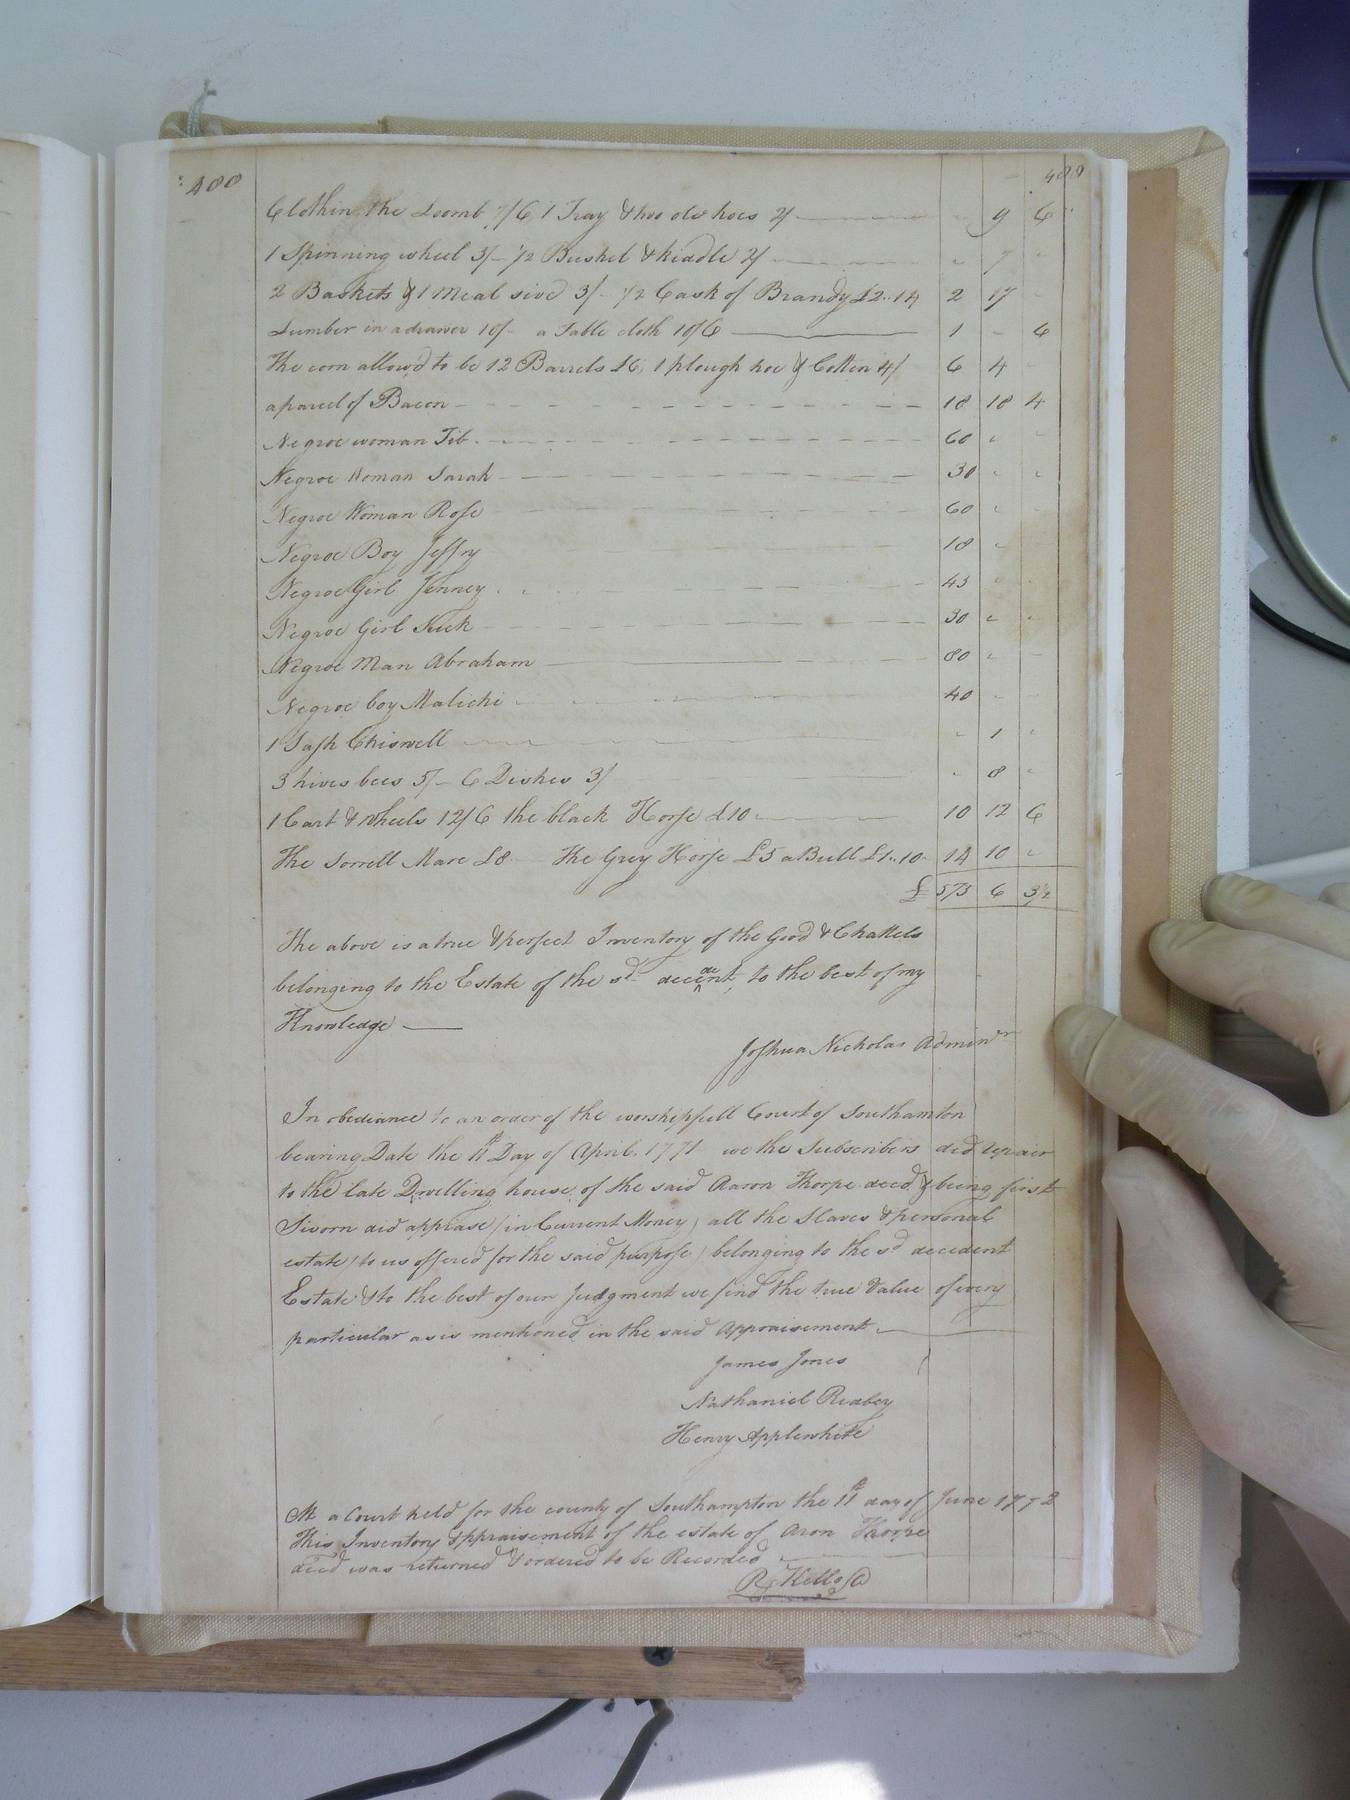 400 400
Clothin the Loomb 7/6 1 Tray & two old hoes 2/ - 9 6
1 Spinning wheel 5/- 1/2 Bushel & kiddle 2/ - 7 -
2 Baskets & 1 Meal sive 3/- 1/2 Cask of Brandy £2..14 2 17 -
Lumber in a drawer 10/- a Table cloth 10/6 1 - 6
The corn allowd to be 12 Barrels £6, 1 plough hoe & Cotten 4/ 6 4 -
a parcel of Bacon 18 18 4
Negroe woman Tib 60 - -
Negroe Woman Sarah 30 - -
Negroe Woman Rose 60 - -
Negroe Boy Jeffry 18 - -
Negroe Girl Jenney 45 - -
Negroe Girl 30 - -
Negroe Man Abraham 80 - -
Negroe boy Malichi 40 - -
1 Sash Chiswell - 1 -
3 hives bees 5/- 6 Dishes 3/ - 8 -
1 Cart & Wheels 12/6 the black Horse £10 10 12 6
The Sorrell Mare £8 The Grey Horse £5 a Bull £1..10 14 10 -
£ 575 6 3 1/2
The above is a true & perfect Inventory of the Good & Chattels
belonging to the Estate of the sd decedent, to the best of my
Knowledge
Joshua Nicholas Adminr
In obediance to an order of the worshepfull Court of Southamton
bearing Date the 11th Day of April 1771 we the Subscribers did repair
to the late Dwelling house of the said Aaron Thorpe decd & being first
Sworn did appriase (in Current Money) all the Slaves & personal
estate (to us offered for the said purpose) belonging to the sd decedent
Estate & to the best of our Judgment we find the true Value of every
particular as is mentioned in the said Appraisement
James Jones
Nathaniel Ridley
Henry Applewhite
At a Court held for the county of Southampton the 11th day of June 1772
This Inventory & Appraisement of the estate of Aron Thorpe
decd was returned & ordered to be Recorded